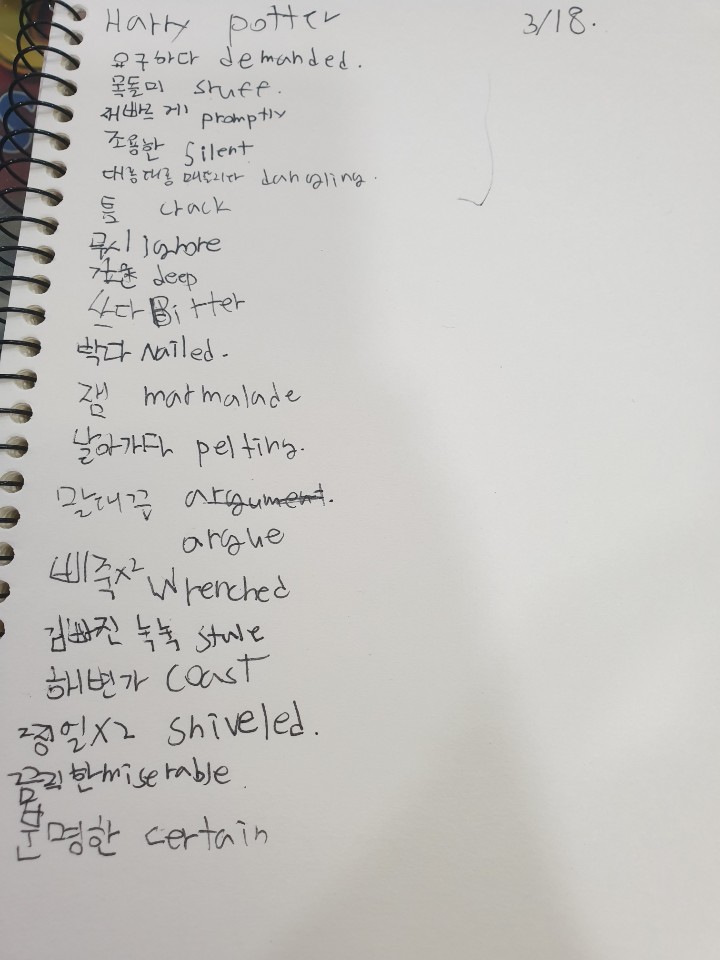 Harry potter 3/18.
요구하다 demanded.
목돌미 stuff.
재빠르게 promptly
조용한 silent
대롱대롱 매도리다 dangling.
틈 crack
무시 ignore
deep
쓰다 Bitter
박다 Nailed.
잼 marmalade
날아가다 pelting.
말대꾸 argument.
argue
삐죽x2 Wrenched
김빠진 눅눅 stale
해변가 coast
쭝얼x2 shiveled.
끔찍한 miserable
분명한 certain